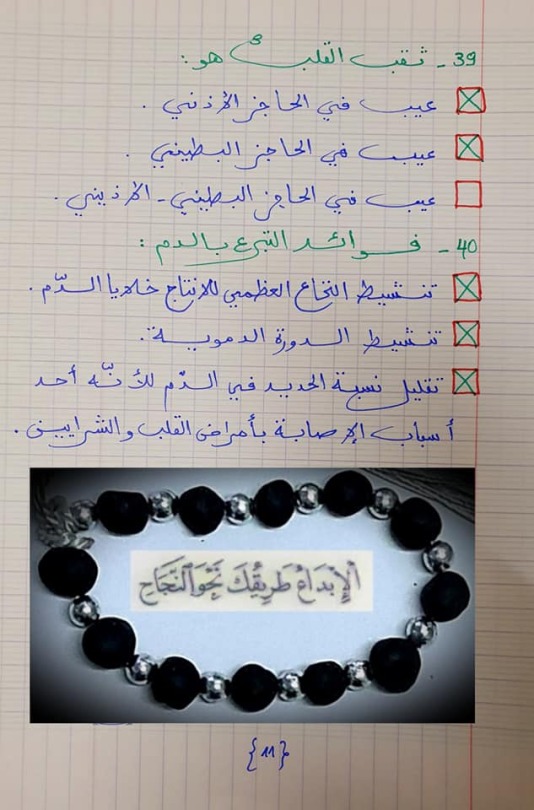 39 - ثقب القلب هو :
عيب في الحاجز الأذني .
عيب في الحاجز البطيني .
عيب في الحاجز البطيني - الأذيني .
40 - فوائد التبرع بالدم :
تنشيط النخاع العظمي للانتاج خلايا الدّم .
تنشيط الدورة الدموية .
تقليل نسبة الحديد في الدّم للأنّه أحد
أسباب الإصابة بأمراض القلب والشرايين .
الإِبْدَاعُ طَرِيقُكَ نَحْوَ النَّجَاحِ
{11}